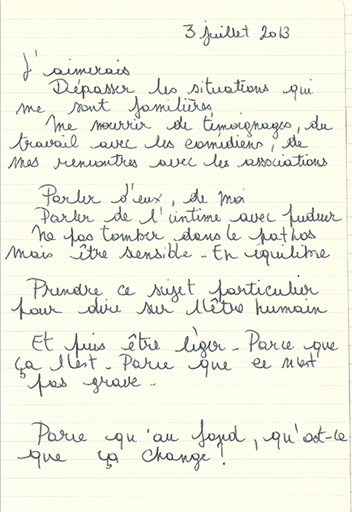 3 juillet 2013
J'aimerais
Dépasser les situations qui
me sont familières
Me nourrir de témoignages, du
travail avec les comédiens, de
mes rencontres avec les associations
Parler d'eux, de moi
Parler de l'intime avec pudeur
Ne pas tomber dans le pathos
Mais être sensible - En équilibre
Prendre ce sujet particulier
pour dire sur l'être humain
Et puis être léger - Parce que
ça l'est - Parce que ce n'est
pas grave -
Parce qu'au fond, qu'est-ce
que ça change ?